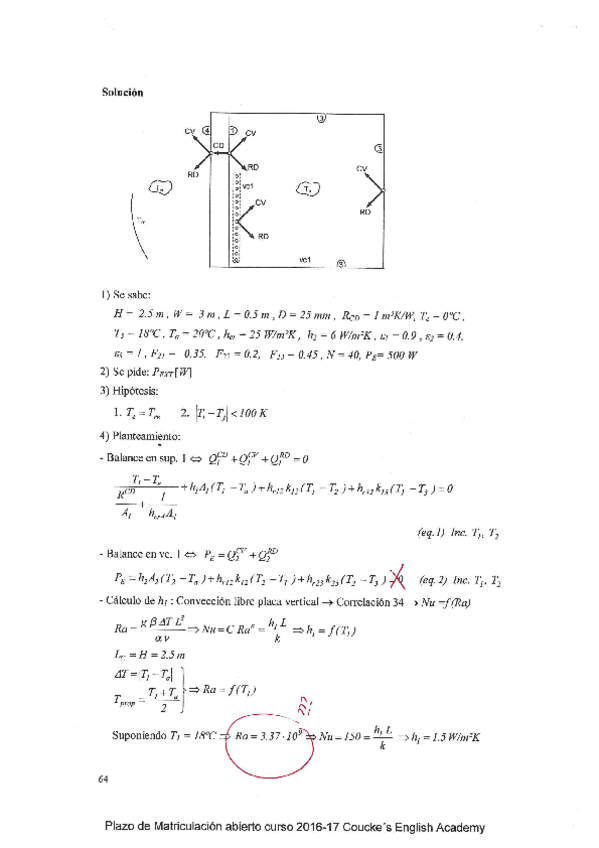 Solución
③
CV ④ ① CV
③
CD
RD RD CV
vc1
CV
RD
RD
vc1
③
1) Se sabe:
H = 2.5 m , W = 3 m , L = 0.5 m , D = 25 mm , R_CD = 1 m²K/W, T_e = 0ºC ,
T_3 = 18ºC , T_a = 20ºC , h_e = 25 W/m²K , h_2 = 6 W/m²K , ε_1 = 0.9 , ε_2 = 0.4,
ε_3 = 1 , F_21 = 0.35, = 0.2, = 0.45 , N = 40, P_E = 500 W
2) Se pide: P_EXT [W]
3) Hipótesis:
1. T_e = T_re 2. |T_i - T_j| < 100 K
4) Planteamiento:
- Balance en sup. 1 ⇔ Q_1^CD + Q_1^CV + Q_1^RD = 0
+ h_1 A_1 (T_1 - T_a) + h_r12 k_12 (T_1 - T_2) + k_13 (T_1 - T_3) = 0
(eq.1) Inc. T_1, T_2
- Balance en vc. 1 ⇔ P_E = Q_2^CV + Q_2^RD
P_E = h_2 A_2 (T_2 - T_a) + h_r12 k_12 (T_2 - T_1) + h_r23 k_23 (T_2 - T_3) = 0 (eq. 2) Inc. T_1, T_2
- Cálculo de h_1 : Convección libre placa vertical → Correlación 34 → Nu = f(Ra)
Ra = g β ΔT L³ / α ν ⇒ Nu = C Ra^n = h_1 L / k ⇒ h_1 = f(T_1)
= H = 2.5 m
ΔT = |T_1 - T_a|
T_prop = T_1 + T_a / 2 ⇒ Ra = f(T_1)
???
Suponiendo T_1 = 18ºC ⇒ Ra = 3.37·10⁹ ⇒ Nu = 150 = h_1 L / k ⇒ h_1 = 1.5 W/m²K
64
Plazo de Matriculación abierto curso 2016-17 Coucke´s English Academy